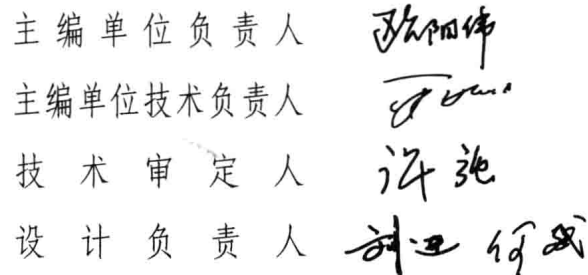 主编单位负责人 欧阳伟
主编单位技术负责人
技术审定人 许弛
设计负责人 刘进